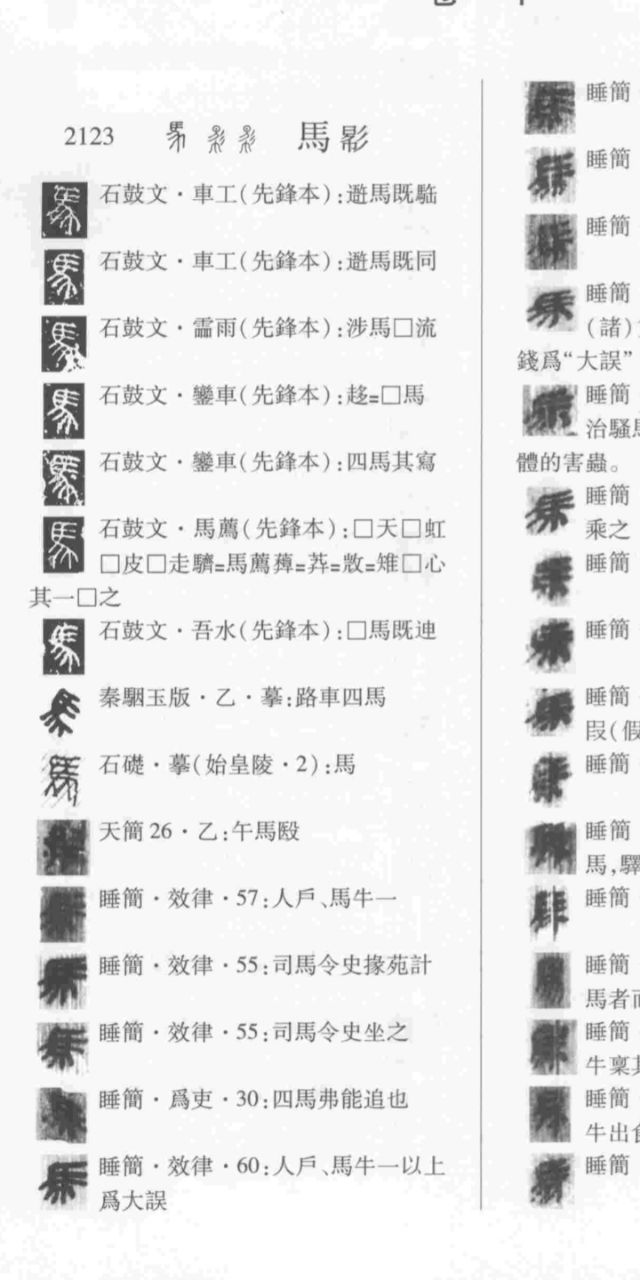 2123 馬
石鼓文·車工(先鋒本):避馬既騊
石鼓文·車工(先鋒本):避馬既同
石鼓文·霝雨(先鋒本):涉馬□流
石鼓文·鑾車(先鋒本):趍=□馬
石鼓文·鑾車(先鋒本):四馬其寫
石鼓文·馬薦(先鋒本):□天□虹
□皮□走騎=馬薦 心
其一□之
石鼓文·吾水(先鋒本):□馬既迧
秦駰玉版·乙·摹:路車四馬
石礎·摹(始皇陵·2):馬
天簡26·乙:午馬殹
睡簡·效律·57:人戶、馬牛一
睡簡·效律·55:司馬令史掾苑計
睡簡·效律·55:司馬令史坐之
睡簡·爲吏·30:四馬弗能追也
睡簡·效律·60:人戶、馬牛一以上
爲大誤
睡簡
睡簡
睡簡
睡簡
(諸)
錢爲“大誤”
睡簡
治騷
體的害蟲。
睡簡
乘之
睡簡
睡簡
睡簡
叚(假
睡簡
睡簡
馬,驛
睡簡
睡簡
馬者
睡簡
牛稟
睡簡
牛出
睡簡